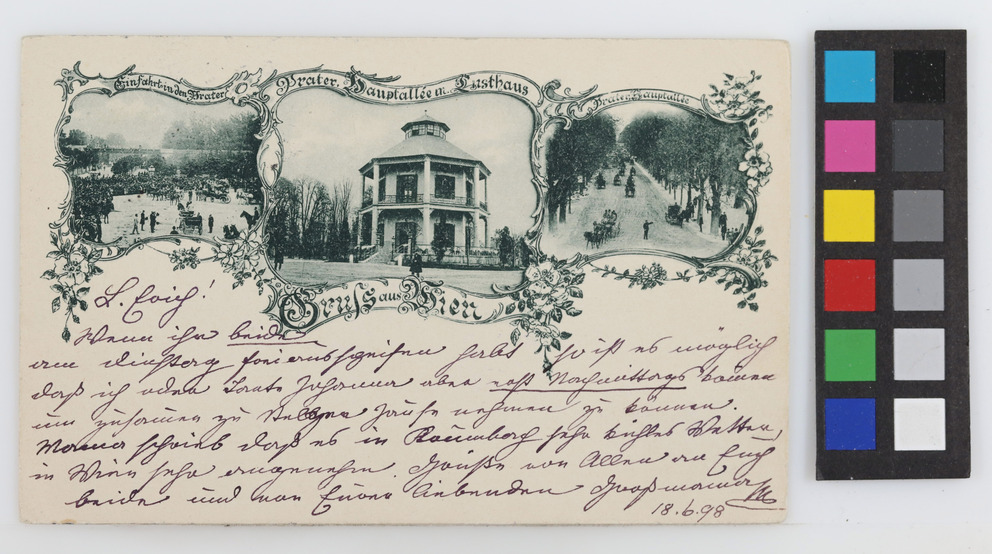 Einfahrt in den Prater
Prater, Hauptallée m. Lusthaus
Prater, Hauptallée
Gruss aus Wien
L. Erich!
Wenn ihr beide
am Dinstag frei habt so ist es möglich
daß ich oder Tante Johanna aber erst Nachmittags komen
um zusamen zu Jause nehmen zu können.
Mama schrieb daß es in sehr kühles Wetter,
in Wien sehr angenehm. Grüße von Allen an Euch
beide und von Eurer liebenden Großmama
18.6.98